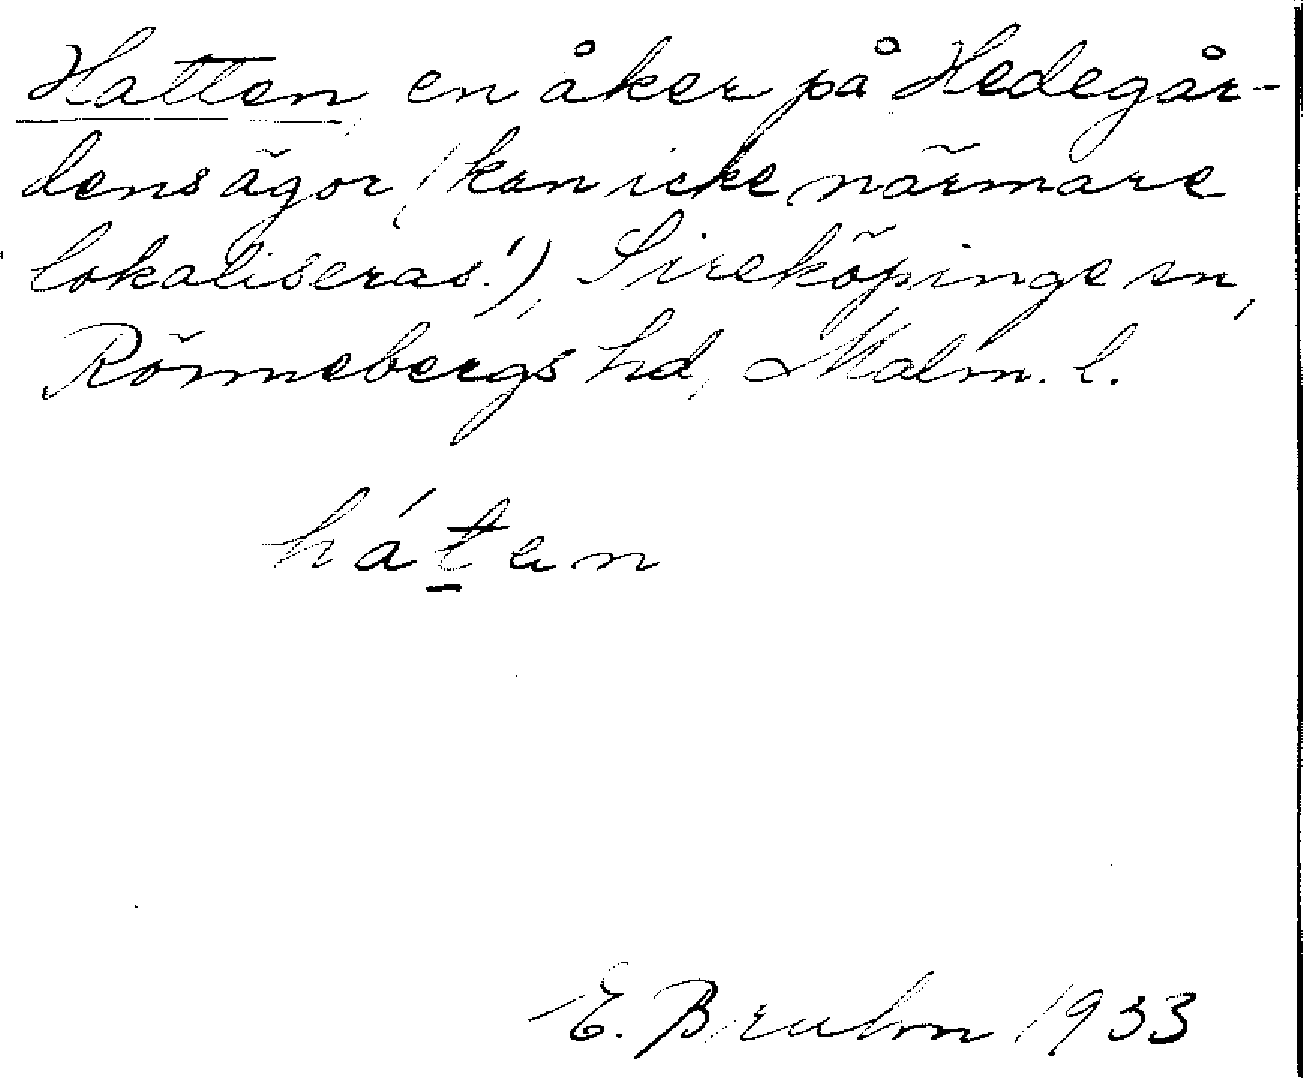 Hatten, en åker på Hedegår-
dens ägor (kan icke närmare
lokaliseras!), Sireköpinge sn,
Rönnebergs hd, Malm. l.
háṯen
E. Bruhn 1933